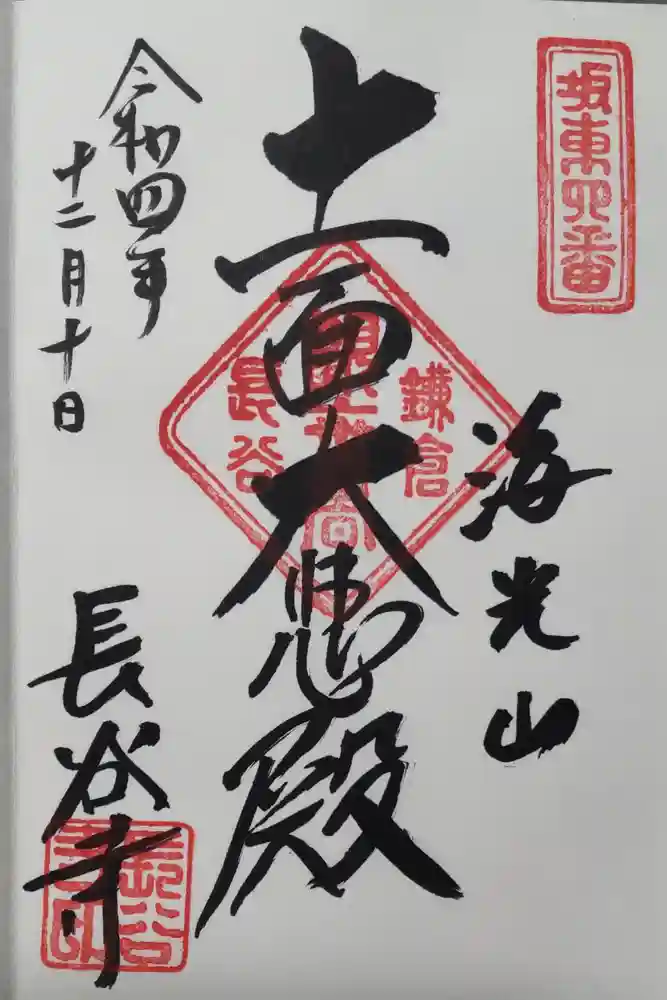 坂東四番
海光山
十一面大悲殿
鎌倉
長谷
令和四年
十二月十日
長谷寺